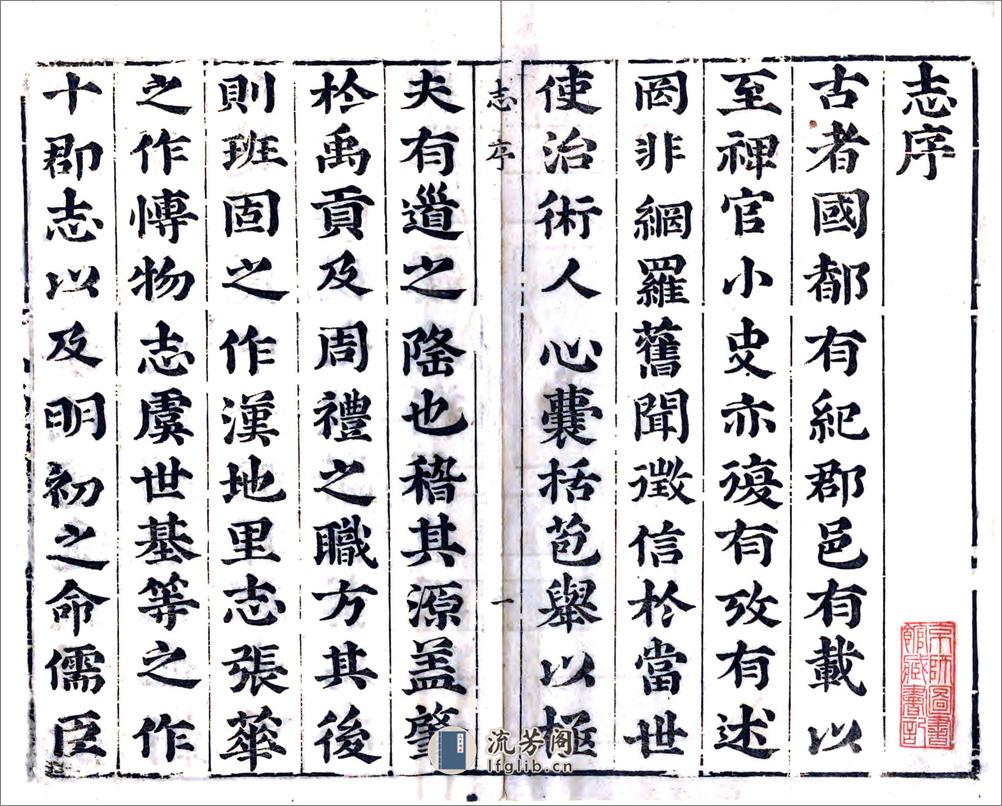 志序
古者國都有紀郡邑有載以
至稗官小史亦復有攷有述
罔非網羅舊聞徵信於當世
使治術人心囊括苞舉以樞
志序
一
夫有道之隆也稽其源蓋肇
於禹貢及周禮之職方其後
則班固之作漢地里志張華
之作博物志虞世基等之作
十郡志以及明初之命儒臣
京師圖書
館藏書記
流芳阁
lfglib.cn